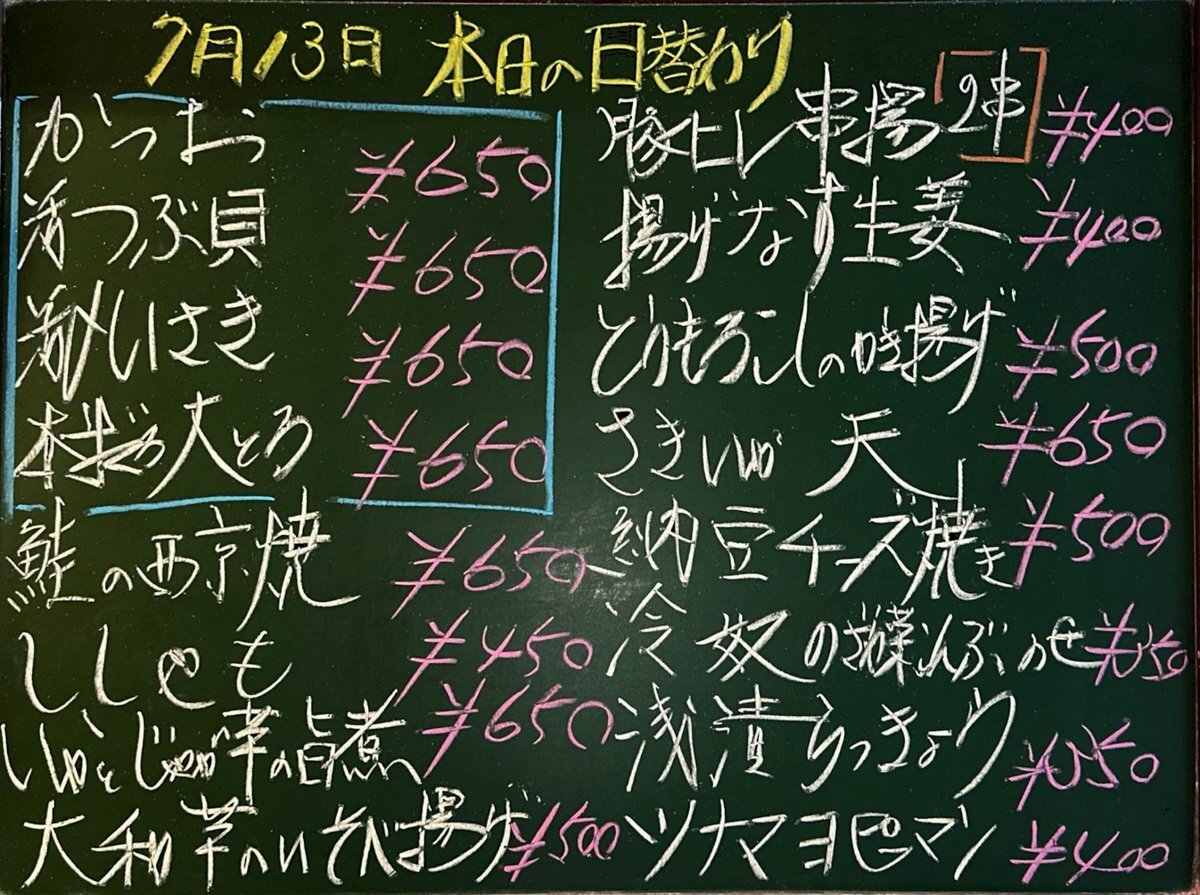 7月13日 本日の日替わり
かつお ¥650
活つぶ貝 ¥650
活〆いさき ¥650
本まぐろ大とろ ¥650
鮭の西京焼 ¥650
ししゃも ¥450
いかとじゃが芋の旨煮 ¥650
大和芋のいそび揚げ ¥500
豚ヒレ串揚[2串] ¥400
揚げなす生姜 ¥400
とうもろこしのかき揚げ ¥500
さきいか天 ¥650
納豆チーズ焼き ¥500
冷奴の んぶのせ
浅漬らっきょう
ツナマヨピーマン ¥400